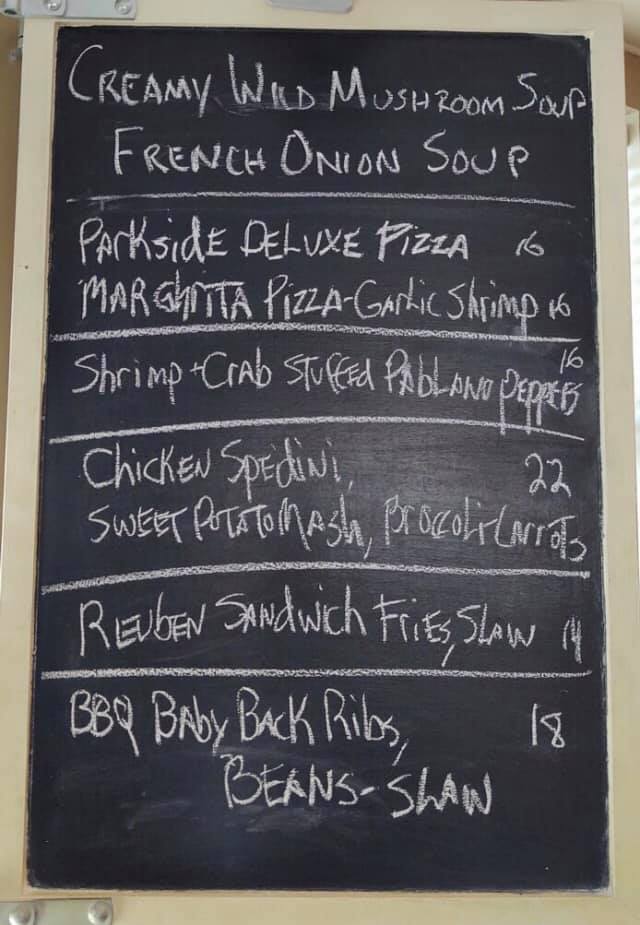 CREAMY WILD MUSHROOM SOUP
FRENCH ONION SOUP
PARKsidE DELUXE PIZZA 16
MARGHRITA PIZZA-GARLIC Shrimp 16
Shrimp+Crab STUFFEd PABLANO PEPPERS 16
ChicKEN SPEdini, 22
SWEET POTATO MAsh, BROCCOLI+CARROTS
REUBEN SANdwich FRiES, SLAW 14
BBQ BAby BACK Ribs, 18
BEANS-SLAW